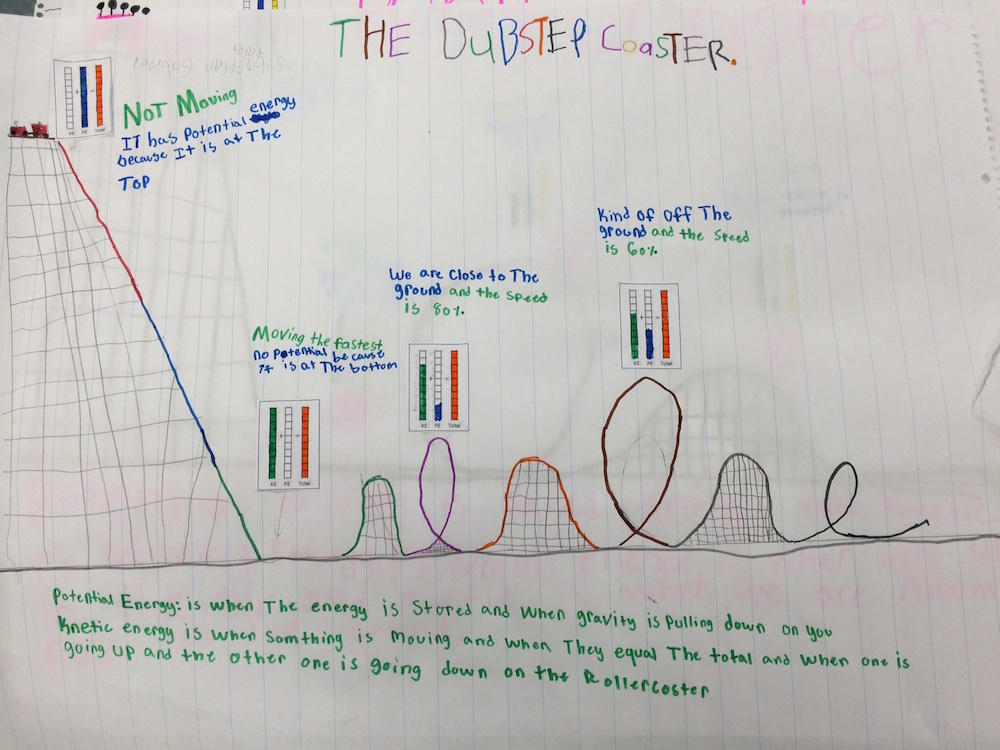 THE DUBSTEP COASTER.
NOT Moving
IT has Potential energy
because It is at The
TOP
KE PE Total
Kind of off The
ground and the speed
is 60%
KE PE Total
We are Close to The
ground and the speed
is 80%
KE PE Total
Moving the fastest
no Potential because
it is at The bottom
KE PE Total
Potential Energy: is when The energy is Stored and when gravity is Pulling down on you
Knetic energy is when Somthing is Moving and when They equal The total and when one is
going up and the other one is going down on the Rollercoster